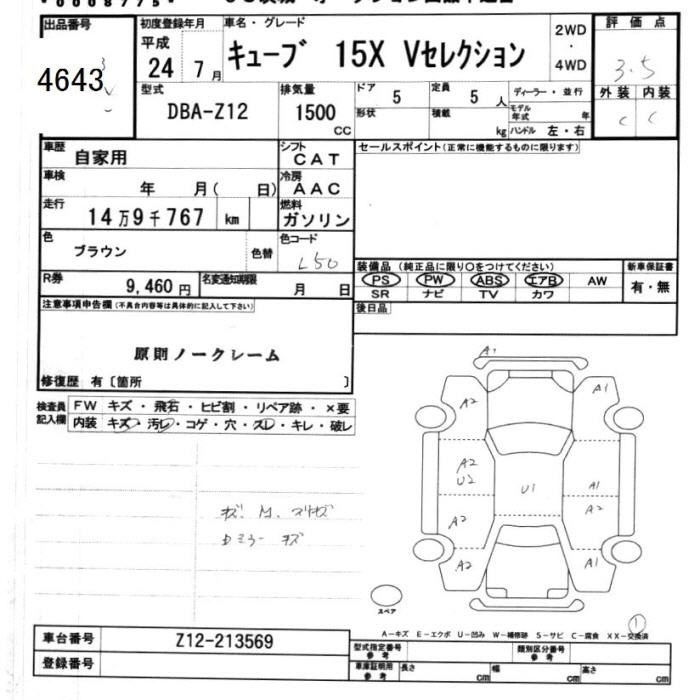 出品番号 初度登録年月 車名・グレード 2WD・4WD 評価点
4643 平成 24 7月 キューブ 15X Vセレクション 3.5
型式 排気量 ドア 5 定員 5人 ディーラー・並行 外装 内装
DBA-Z12 1500 CC 形状 積載 kg モデル年式 年 C C
ハンドル 左・右
車歴 自家用 シフト CAT セールスポイント(正常に機能するものに限ります)
車検 年 月( 日) 冷房 AAC
走行 14万9千767 km 燃料 ガソリン
色 ブラウン 色替 色コード L50
装備品(純正品に限り○をつけてください) 新車保証書
R券 9,460円 名変通知期限 月 日 PS PW ABS エアB AW 有・無
SR ナビ TV カワ
注意事項申告欄(不具合内容等は具体的に記入して下さい) 後日品
原則ノークレーム
修復歴 有〔箇所 〕
検査員記入欄 FW キズ・飛石・ヒビ割・リペア跡・×要
内装 キズ・汚レ・コゲ・穴・スレ・キレ・破レ
A1
A2 A1
A2 U2 U1 A1
A2 A2
A2 A1
キズ
ミラー キズ
スペア
1
A-キズ E-エクボ U-凹み W-補修跡 S-サビ C-腐食 XX-交換済
車台番号 Z12-213569 型式指定番号 参考 類別区分番号 参考
登録番号 車庫証明用 参考 長さ cm 幅 cm 高さ cm